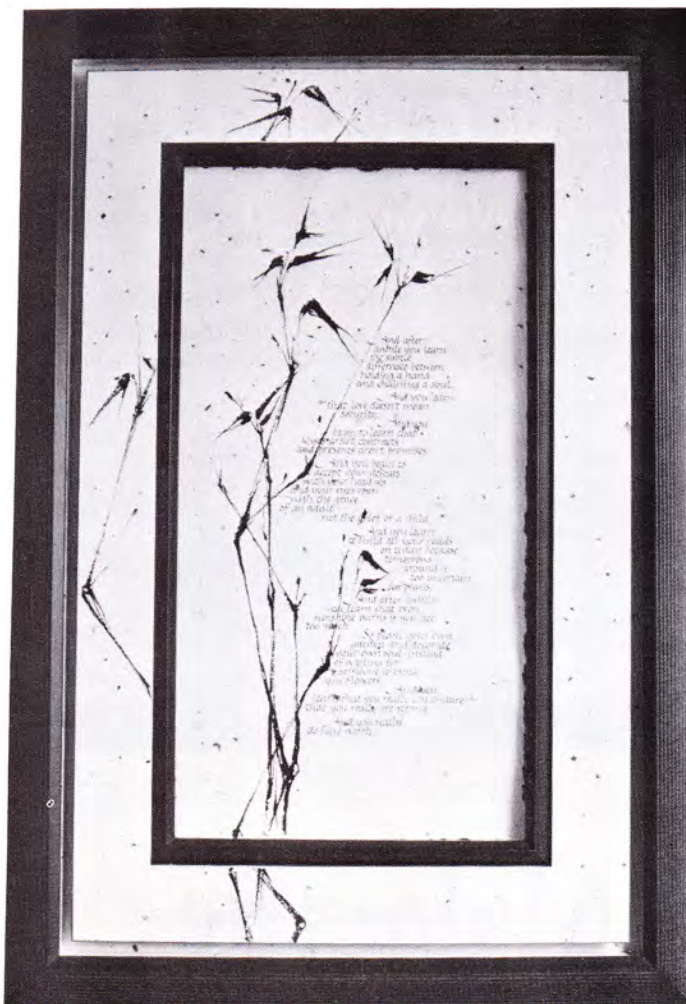 And after
awhile you learn
the subtle
difference between
holding a hand
and chaining a soul,
And you learn
that love doesn't mean
security,
And you
begin to learn that
kisses aren't contracts
and presents aren't promises
And you begin to
accept your defeats
with your head up
and your eyes open
with the grace
of an adult
not the grief of a child
And you learn
to build all your roads
on today because
tomorrows
ground is
too uncertain
for plans.
And after awhile
you learn that even
sunshine burns if you get
too much.
So plant your own
garden and decorate
your own soul, instead
of waiting for
someone to bring
you flowers.
And you
learn that you really can endure
that you really are strong
And you really
do have worth.